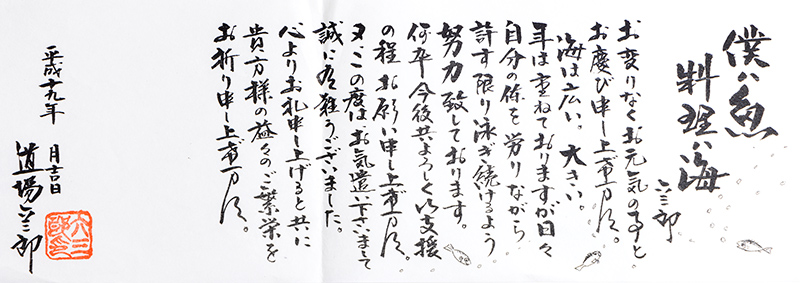 僕は魚
料理は海
六三郎
お変りなくお元気の事と
お慶び申し上げます。
海は広い。大きい。
年は重ねておりますが日々
自分の体を労りながら
許す限り泳ぎ続けるよう
努力致しております。
何卒今後共よろしくご支援
の程お願い申し上げます。
又、この度はお気遣い下さいまして
誠に有難うございました。
心よりお礼申し上げると共に
貴方様の益々のご繁栄を
お祈り申し上げます。
平成十九年 月吉日
道場六三郎